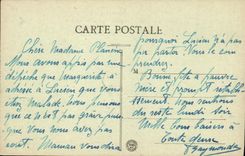 CARTE POSTALE
Chère Madame
Nous avons appris par une
dépêche que Marguerite a
adressé à Lucien que vous
étiez malade. Nous pensons
que ce n'est pas grave puis
que vous nous avez pas
écrit. Maman voudra
pourquoi Lucien n'a pas
pu partir Nous le com
prendrez.
Bonne fête à pauvre
Mère et prompt rétablis
sement. Nous rentrons
du reste lundi soir
Mille bons baisers à
toutes deux
Raymonde